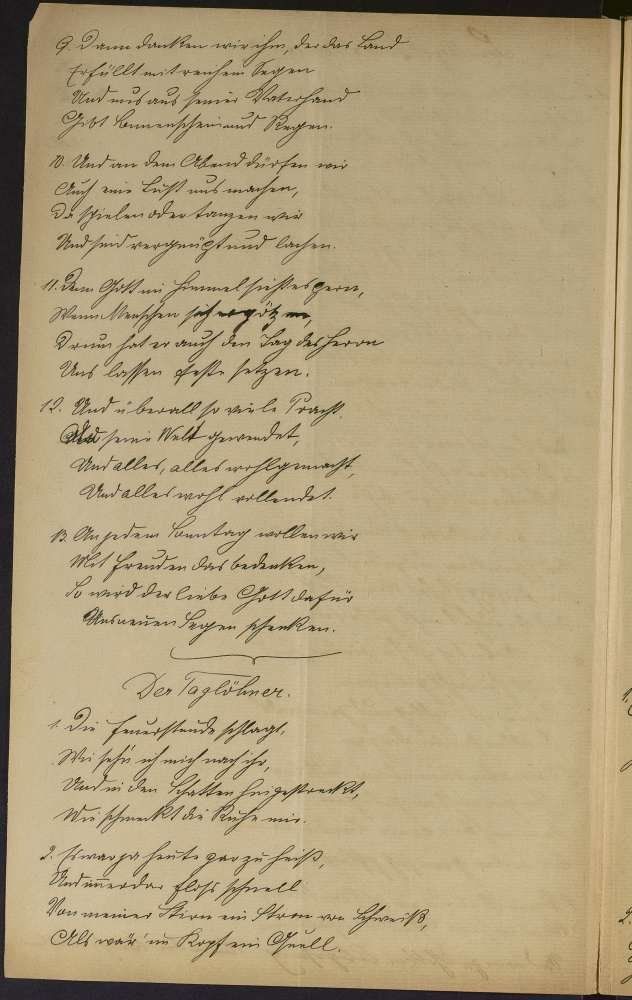 9. Dann danken wir ihm, der das Land
Erfüllt mit reichem Segen
Und uns aus seiner Vaterhand
Gibt Sonnenschein und Regen.
10. Und an dem Abend dürfen wir
Auch eine Lust uns machen,
Da spielen oder tanzen wir
Und sind vergnügt und lachen.
11. Dem Gott im Himmel sieht es gern,
Wenn Menschen sich ergötzen,
Drum hat er auch den Tag des Herrn
Uns lassen feste setzen.
12. Und überall so viele Pracht
seine Welt gewendet,
Und alles, alles wohlgemacht,
Und alles wohl vollendet.
13. An jedem Sonntag wollen wir
Mit Freuden das bedenken,
So wird der liebe Gott dafür
Uns neuen Segen schenken.
Der Taglöhner.
1. Die Feuerstunde schlagt,
Wie sehn ich mich nach ihr,
Und in den Schatten hingestreckt,
Wie schmeckt die Ruhe mir.
2. Es war ja heute gar zu heiß,
Und immerdar floß schnell
Von meiner Stirn ein Strom von Schweiß,
Als wär im Kopf ein Quell.